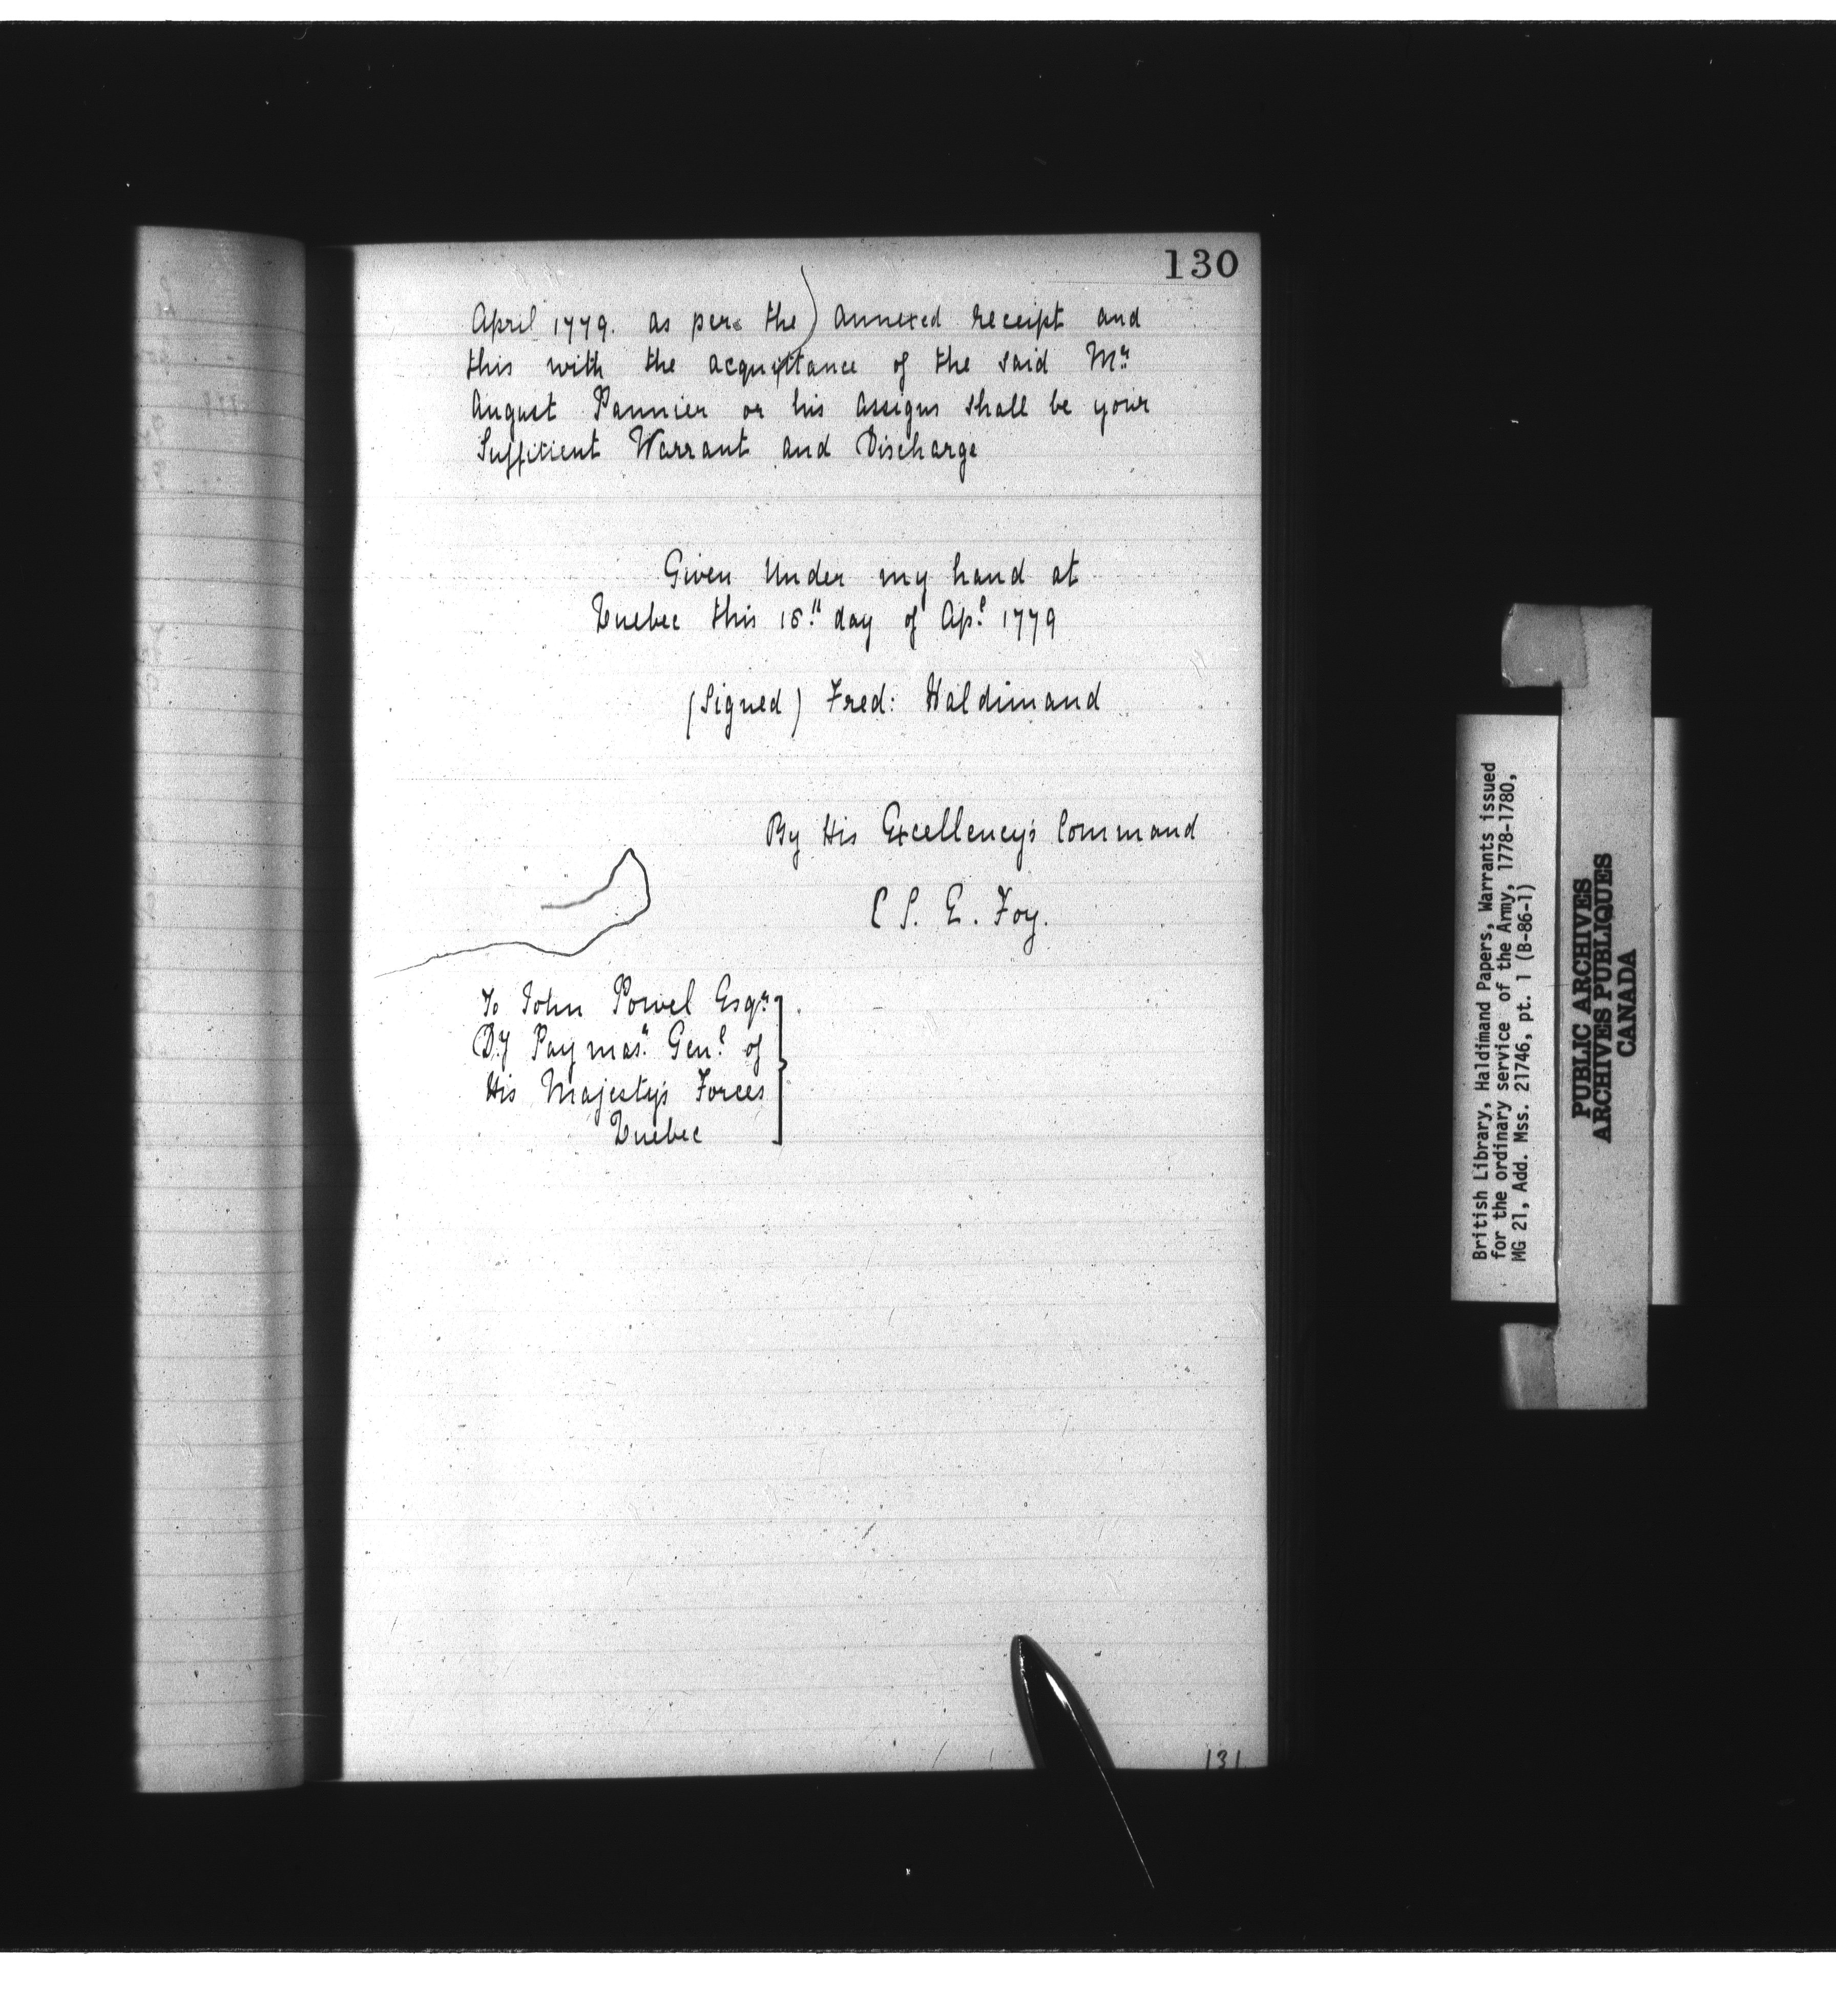 130
April 1779. as per the annexed receipt and
this with the acquittance of the said Mr
August Pannier or his assigns shall be your
Sufficient Warrant and Discharge
Given Under my hand at
Quebec this 15th day of Apl 1779
(Signed) Fred: Haldimand
By His Excellency's Command
C S. E. Foy.
To John Powel Esqr
Dy Paymasr Genl of
His Majesty's Forces
Quebec
131
British Library, Haldimand Papers, Warrants issued
for the ordinary service of the Army, 1778-1780,
MG 21, Add. Mss. 21746, pt. 1 (B-86-1)
PUBLIC ARCHIVES
ARCHIVES PUBLIQUES
CANADA